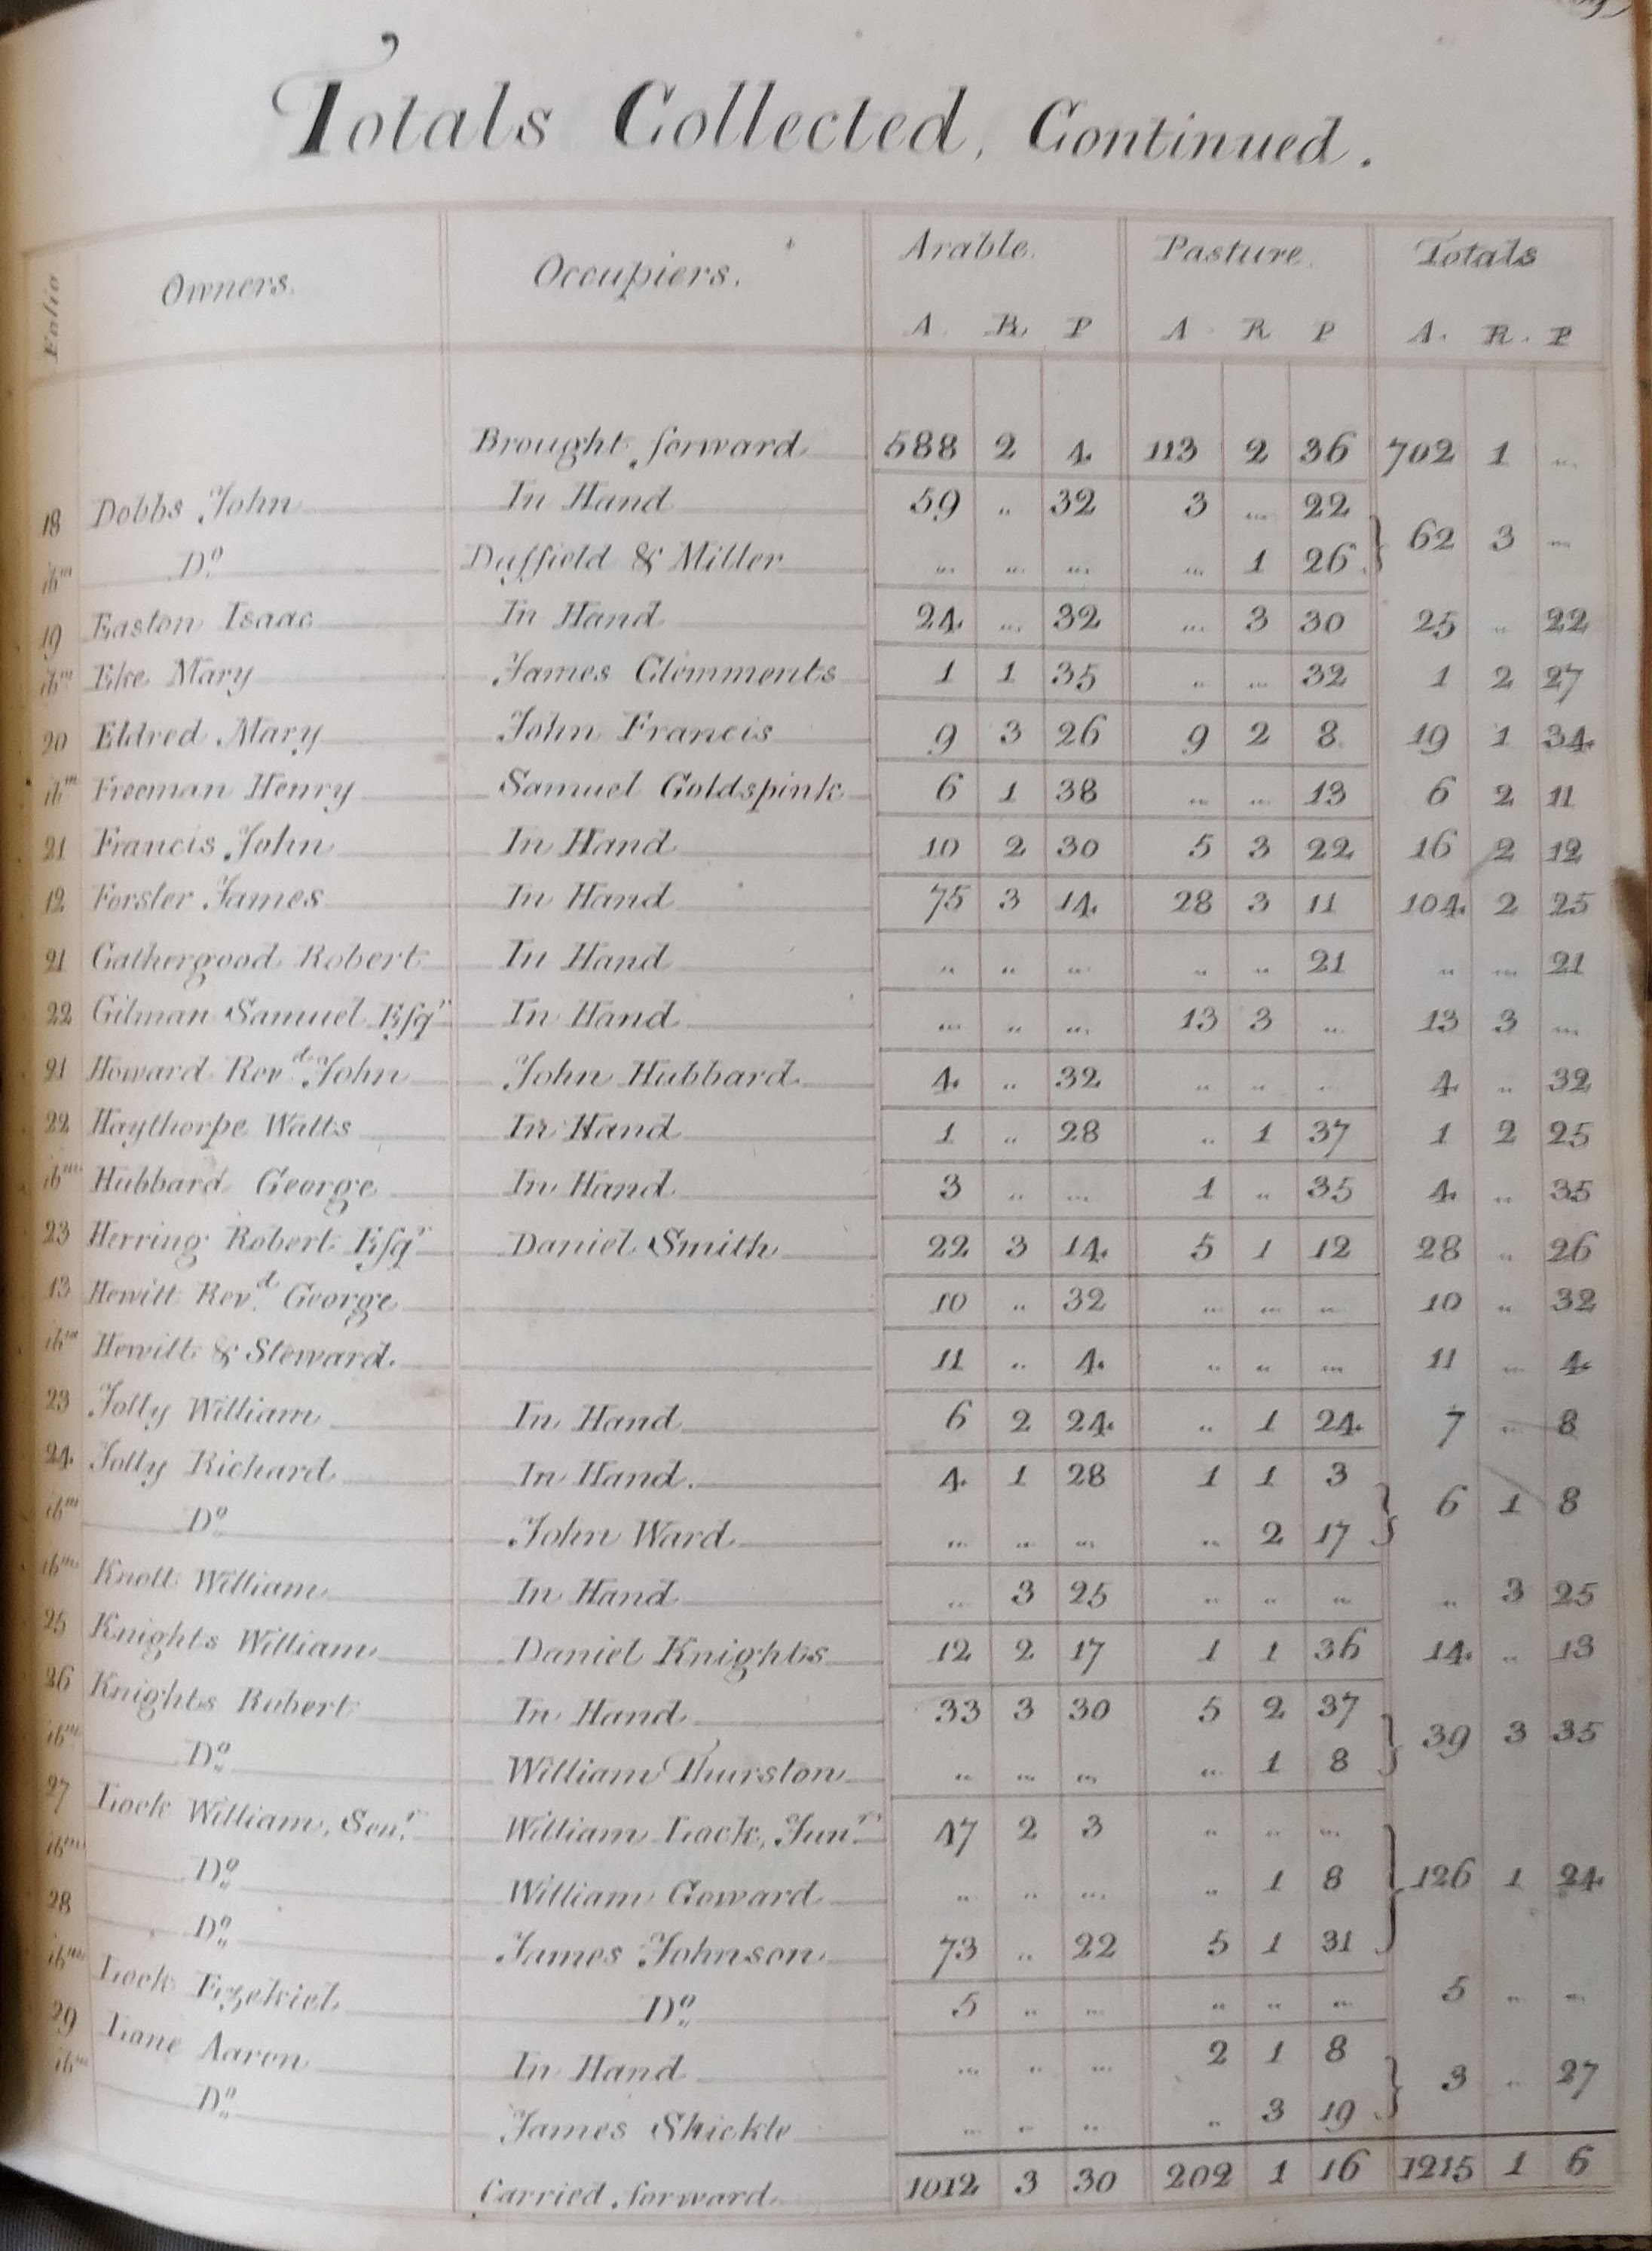 Totals Collected, Continued.
Folio Owners. Occupiers. Arable. Pasture. Totals
A. R. P A. R P A. R. P
Brought forward 588 2 4 113 2 36 702 1 ...
18 Dobbs John In Hand 59 .. 32 3 ... 22
ibm Do Duffield & Miller ... ... ... ... 1 26 } 62 3 ...
19 Easton Isaac In Hand 24 ... 32 ... 3 30 25 .. 22
ibm Eke Mary James Clemments 1 1 35 .. ... 32 1 2 27
20 Eldred Mary John Francis 9 3 26 9 2 8 19 1 34
ibm Freeman Henry Samuel Goldspink 6 1 38 ... ... 13 6 2 11
21 Francis John In Hand 10 2 30 5 3 22 16 2 12
12 Forster James In Hand 75 3 14 28 3 11 104 2 25
21 Gathergood Robert In Hand .. .. ... .. .. 21 .. ... 21
22 Gilman Samuel Esqr In Hand ... .. ... 13 3 ... 13 3 ...
21 Howard Revd John John Hubbard 4 .. 32 .. .. ... 4 .. 32
22 Haythorpe Watts In Hand 1 .. 28 .. 1 37 1 2 25
ibm Hubbard George In Hand 3 .. ... 1 .. 35 4 .. 35
23 Herring Robert Esqr Daniel Smith 22 3 14 5 1 12 28 .. 26
13 Hewitt Revd George 10 .. 32 ... ... ... 10 .. 32
ibm Hewitt & Steward. 11 .. 4 .. .. ... 11 ... 4
23 Jolly William In Hand 6 2 24 .. 1 24 7 ... 8
24 Jolly Richard In Hand. 4 1 28 1 1 3
ibm Do John Ward ... ... ... ... 2 17 } 6 1 8
ibm Knott William In Hand ... 3 25 .. .. ... .. 3 25
25 Knights William Daniel Knights 12 2 17 1 1 36 14 .. 13
26 Knights Robert In Hand 33 3 30 5 2 37
ibm Do William Thurston .. ... ... ... 1 8 } 39 3 35
27 Lock William, Senr. William Lock, Junr. 47 2 3 .. .. ...
ibm Do William Goward .. .. ... .. 1 8 } 126 1 24
28 Do James Johnson 73 .. 22 5 1 31
ibm Lock Ezekiel Do 5 .. ... .. .. ... 5 ... ...
29 Lane Aaron In Hand ... .. ... 2 1 8
ibm Do James Shickle ... .. .. .. 3 19 } 3 .. 27
Carried forward 1012 3 30 202 1 16 1215 1 6